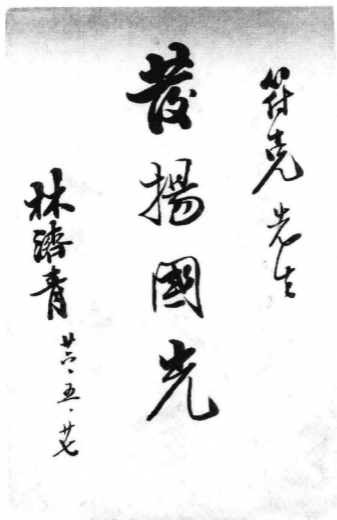 符克先生
發揚國光
林濟青
廿六·五·廿七